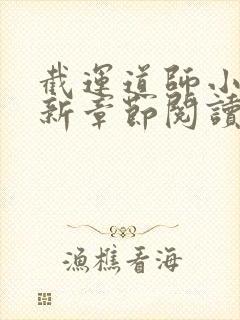 截運道師小
新章節閱讀
漁樵看海